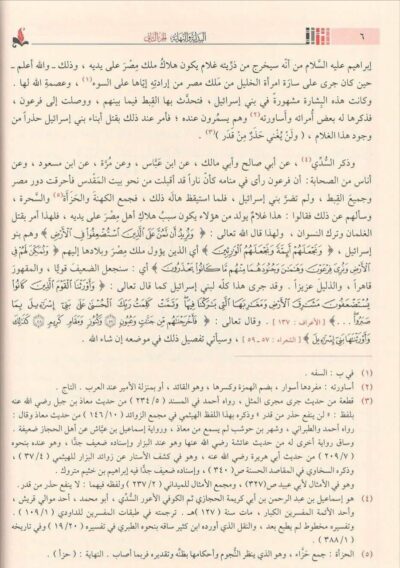 ٦
البداية والنهاية
إبراهيم عليه السلام من أنّه سيخرج من ذرّيته غلام يكون هلاكُ ملك مِصْرَ على يديه ، وذلك ـ والله أعلم ـ
حين كان جرى على سارَة امرأة الخليل من مَلك مصر من إرادتِه إيّاها على السوء(١) ، وعصمةِ الله لها .
وكانت هذه البِشارة مشهورةً في بني إسرائيل ، فتحدَّث بها القِبطُ فيما بينهم ، ووصلت إلى فرعون ،
فذكرها له بعضُ أمرائه وأساورته(٢) وهم يسمُرون عنده ؛ فأمر عند ذلك بقتل أبناء بني إسرائيل حذراً من
وجود هذا الغلام ، ( ولَنْ يُغني حَذَرٌ مِنْ قَدَر )(٣) .
وذكر السُّدِّي(٤) ، عن أبي صالح وأبي مالك ، عن ابن عبَّاس ، وعن مُرَّة ، عن ابن مسعود ، وعن
أناس من الصحابة: أن فرعون رأى في منامه كأنَّ ناراً قد أقبلت من نحو بيت المَقْدس فأحرقت دور مصر
وجميعَ القِبط ، ولم تضرَّ بني إسرائيل ، فلما استيقظ هالَه ذلك ، فجمع الكهنةَ والحَزَأة(٥) والسَّحرة ،
وسألهم عن ذلك فقالوا : هذا غلامٌ يولد من هؤلاء يكون سببُ هلاكِ أهل مِصْرَ على يديه ، فلهذا أمر بقتل
الغلمان وترك النسوان ، ولهذا قال الله تعالى : ﴿ وَنُرِيدُ أَن نَّمُنَّ عَلَى ٱلَّذِينَ ٱسْتُضْعِفُوا۟ فِى ٱلْأَرْضِ ﴾ وهم بنو
إسرائيل ، ﴿ وَنَجْعَلَهُمْ أَئِمَّةً وَنَجْعَلَهُمُ ٱلْوَٰرِثِينَ ﴾ أي الذين يؤول ملك مِصْرَ وبلادها إليهم ﴿ وَنُمَكِّنَ لَهُمْ فِى
ٱلْأَرْضِ وَنُرِىَ فِرْعَوْنَ وَهَٰمَٰنَ وَجُنُودَهُمَا مِنْهُم مَّا كَانُوا۟ يَحْذَرُونَ ﴾ أي : سنجعل الضعيفَ قويًّا ، والمقهور
قاهراً ، والذليلَ عزيزاً . وقد جرى هذا كلّه لبني إسرائيل كما قال تعالى : ﴿ وَأَوْرَثْنَا ٱلْقَوْمَ ٱلَّذِينَ كَانُوا۟
يُسْتَضْعَفُونَ مَشَٰرِقَ ٱلْأَرْضِ وَمَغَٰرِبَهَا ٱلَّتِى بَٰرَكْنَا فِيهَا ۖ وَتَمَّتْ كَلِمَتُ رَبِّكَ ٱلْحُسْنَىٰ عَلَىٰ بَنِىٓ إِسْرَٰٓءِيلَ بِمَا
صَبَرُوا۟ . . . ﴾ [ الأعراف : ١٣٧ ] . وقال تعالى : ﴿ فَأَخْرَجْنَٰهُم مِّن جَنَّٰتٍ وَعُيُونٍ ۝ وَكُنُوزٍ وَمَقَامٍ كَرِيمٍ ۝ كَذَٰلِكَ
وَأَوْرَثْنَٰهَا بَنِىٓ إِسْرَٰٓءِيلَ ﴾ [ الشعراء : ٥٧ ـ ٥٩ ] ، وسيأتي تفصيل ذلك في موضعه إن شاء الله .
(١) في ب : السفه .
(٢) أساورته : مفردها أسوار ، بضم الهمزة وكسرها ، وهو القائد ، أو بمنزلة الأمير عند العرب . التاج .
(٣) قطعة من حديث جرى مجرى المثل ، رواه أحمد في المسند ( ٢٣٤/٥ ) من حديث معاذ بن جبل رضي الله عنه
بلفظ : « لن ينفع حذر من قدر » وذكره بهذا اللفظ الهيثمي في مجمع الزوائد ( ١٤٦/١٠ ) من حديث معاذ وقال :
رواه أحمد والطبراني ، وشهر بن حوشب لم يسمع من معاذ ، ورواية إسماعيل بن عيَّاش عن أهل الحجاز ضعيفة .
وساق رواية أخرى له من حديث عائشة رضي الله عنها وهو عند البزار وإسناده ضعيف جدًّا ، وهو عنده بنحوه
( ٢٠٩/٧ ) من حديث أبي هريرة رضي الله عنه ، وهو في كشف الأستار عن زوائد البزار للهيثمي ( ٣٧/٤ ) ،
وذكره السخاوي في المقاصد الحسنة ص( ٣٤٠ ) ، وإسناده ضعيف جدًّا فيه إبراهيم بن خثيم متروك .
وهو في الأمثال لأبي عبيد ص(٣٢٧) ، ومجمع الأمثال للميداني ( ٢٣٧/٢ ) ولفظه فيهما : لا ينفع حذر من قدر .
(٤) هو إسماعيل بن عبد الرحمن بن أبي كريمة الحجازي ثم الكوفي الأعور السُّدِّي ، أبو محمد ، أحد موالي قريش ،
وأحد الأئمة المفسرين الكبار ، مات سنة ( ١٢٧ )هـ . ترجمته في طبقات المفسرين للداودي ( ١٠٩/١ ) .
وتفسيره مخطوط لم يطبع بعد ، والنقل الذي أورده ابن كثير ساقه بنحوه الطبري في تفسيره ( ١٩/٢٠ ) وفي تاريخه
( ٣٨٨/١ ) .
(٥) الحزأة : جمع حَزَّاء ، وهو الذي ينظر النُّجوم وأحكامها بظنِّه وتقديره فربما أصاب . النهاية : ( حزأ ) .